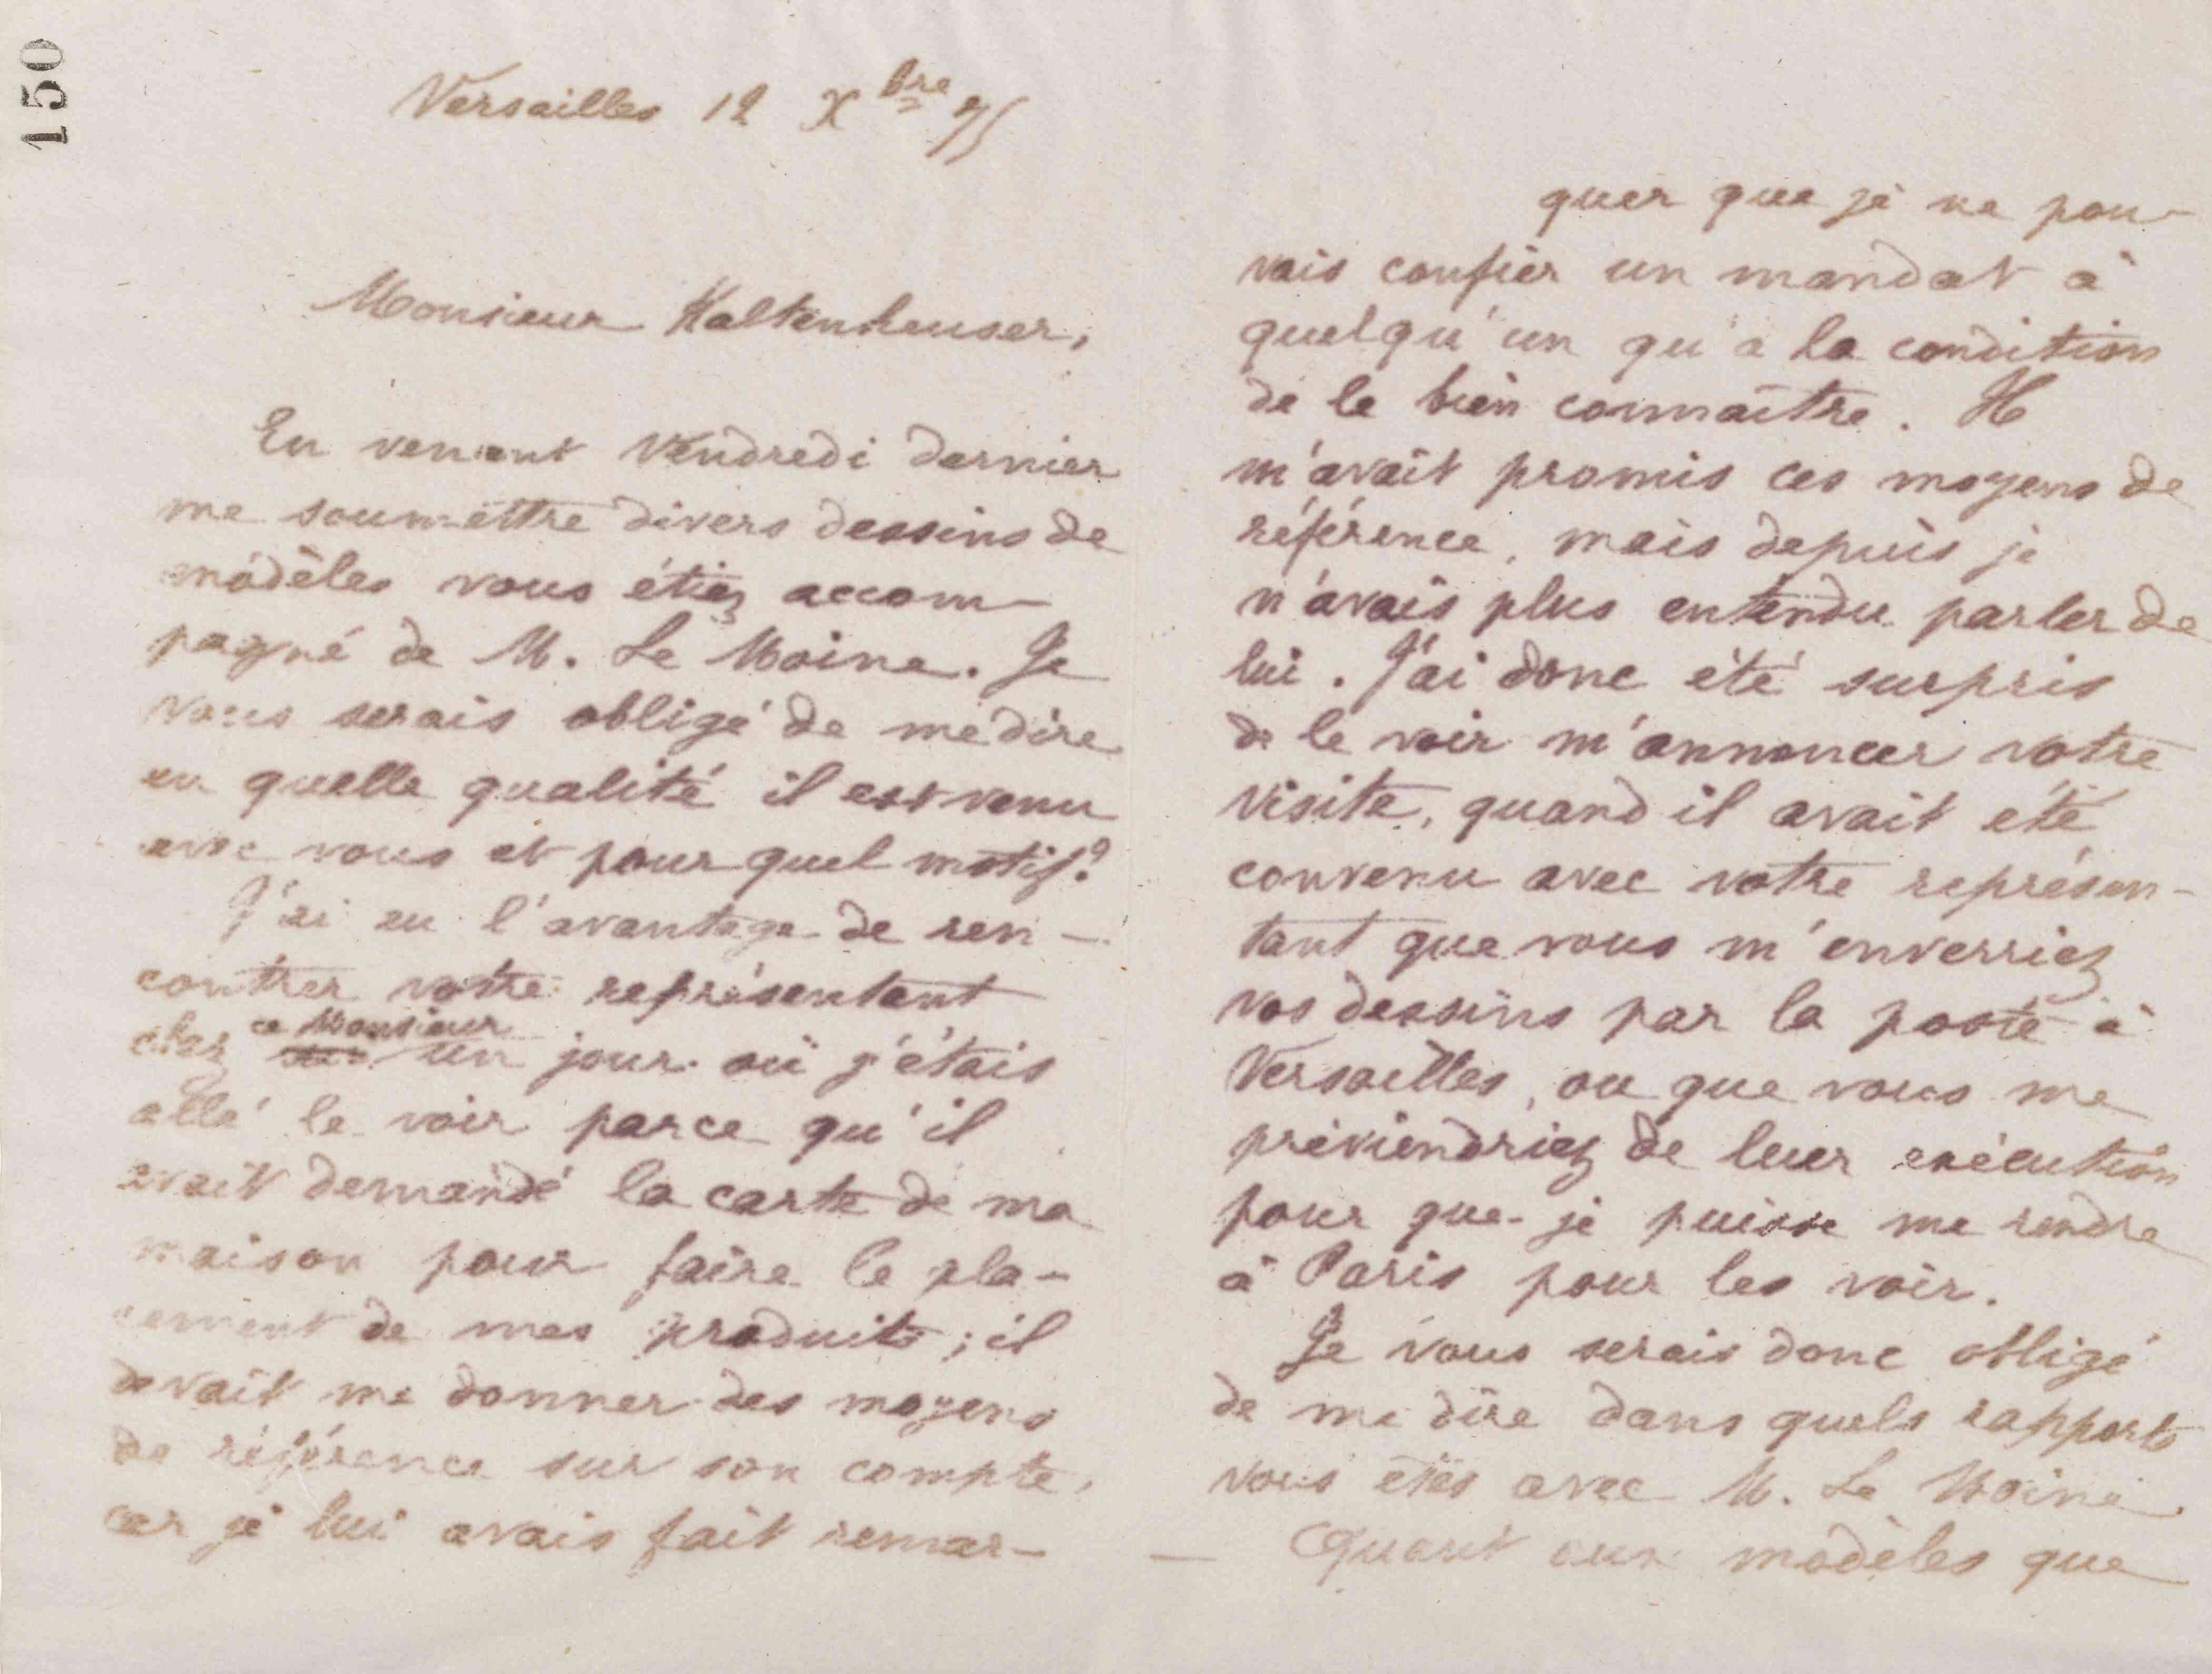 150
Versailles 12 Xbre 75
Monsieur Kaltenheuser,
En venant Vendredi dernier
me soumettre divers dessins de
modèles vous étiez accom-
pagné de M. Le Moine. Je
vous serais obligé de me dire
en quelle qualité il est venu
avec vous et pour quel motif?
J'ai eu l'avantage de ren-
contrer votre représentant
chez ce Monsieur un jour où j'étais
allé le voir parce qu'il
avait demandé la carte de ma
maison pour faire le pla-
cement de mes produits; il
devait me donner des moyens
de référence sur son compte,
car je lui avais fait remar-
quer que je ne pou-
vais confier un mandat à
quelqu'un qu'à la condition
de le bien connaître. Il
m'avait promis ces moyens de
référence, mais depuis je
n'avais plus entendu parler de
lui. J'ai donc été surpris
de le voir m'annoncer votre
visite, quand il avait été
convenu avec votre représen-
tant que vous m'enverriez
vos dessins par la poste à
Versailles, ou que vous me
préviendriez de leur exécution
pour que je puisse me rendre
à Paris pour les voir.
Je vous serais donc obligé
de me dire dans quels rapports
vous êtes avec M. Le Moine.
— Quant aux modèles que